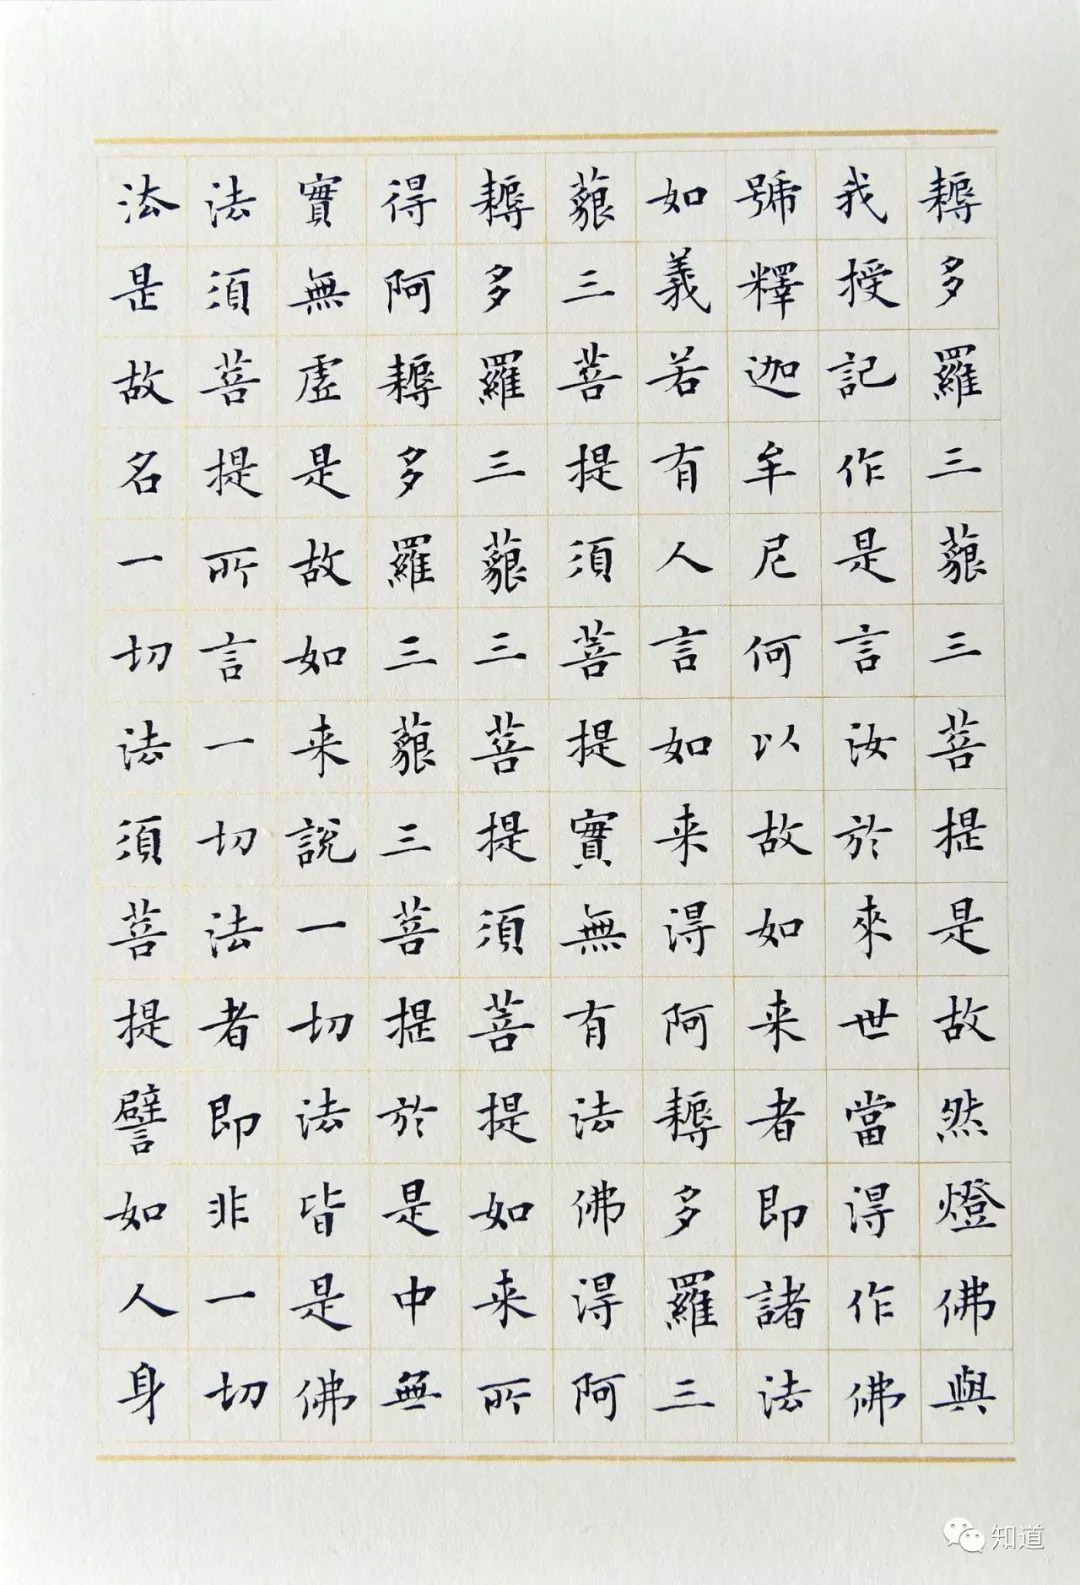 耨多羅三藐三菩提是故然燈佛與
我授記作是言汝於來世當得作佛
號釋迦牟尼何以故如来者即諸法
如義若有人言如来得阿耨多羅三
藐三菩提須菩提實無有法佛得阿
耨多羅三藐三菩提須菩提如来所
得阿耨多羅三藐三菩提於是中無
實無虛是故如来說一切法皆是佛
法須菩提所言一切法者即非一切
法是故名一切法須菩提譬如人身
知道